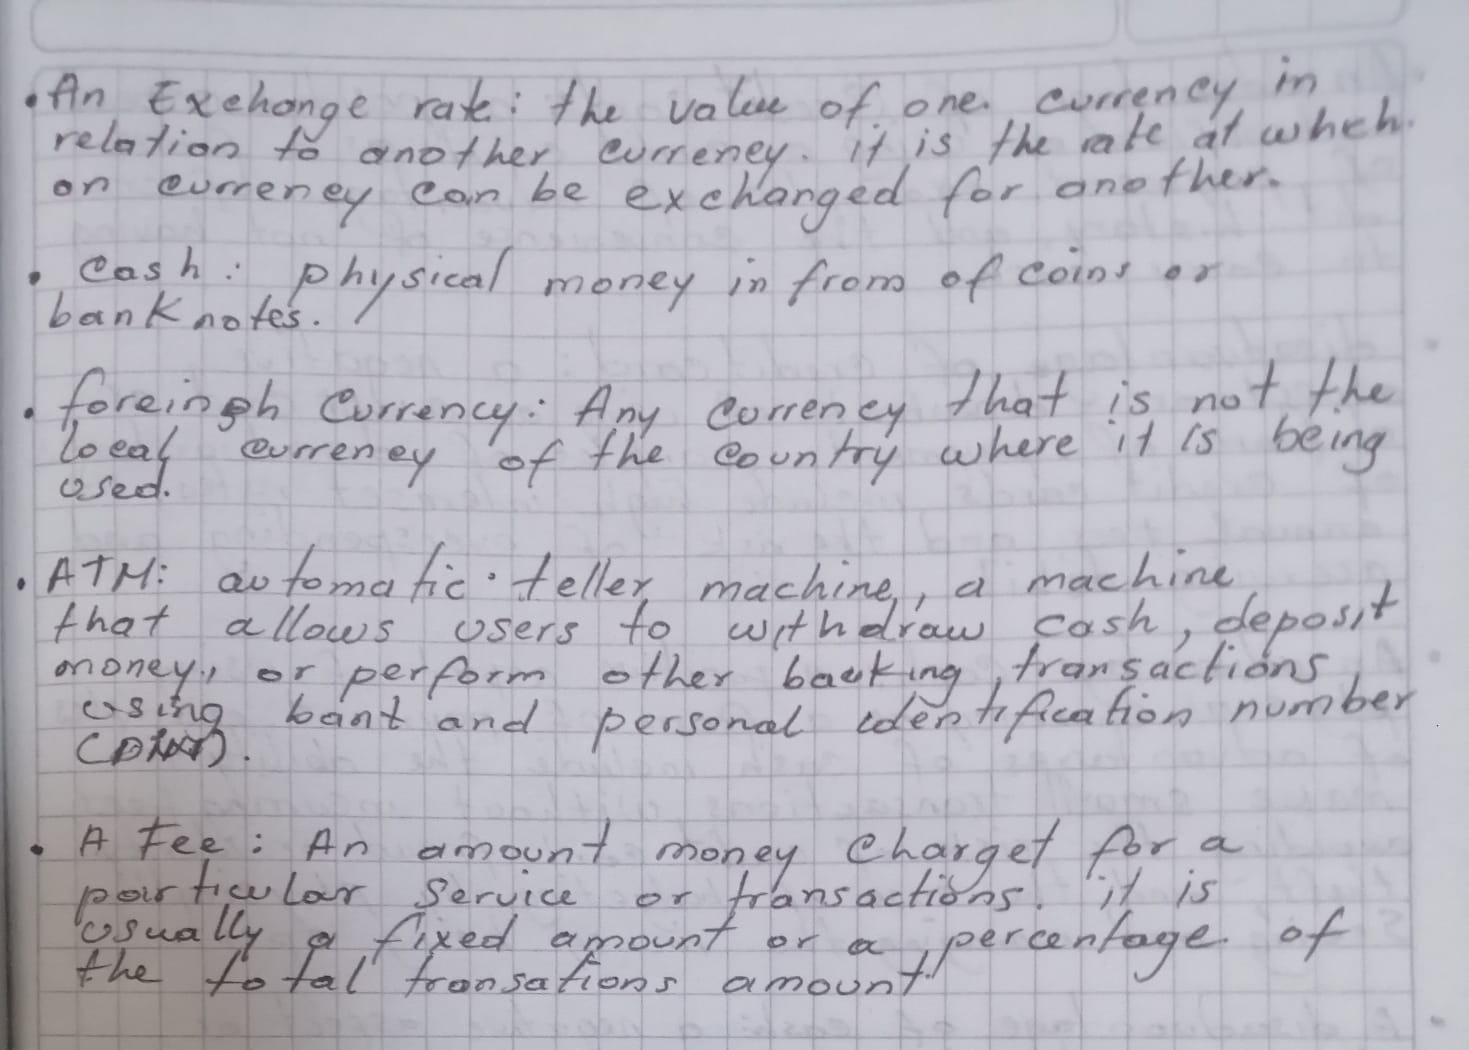 • An Exchange rate: the value of one currency in
relation to another currency. it is the rate at wheh.
on currency can be exchanged for another.
• Cash: physical money in from of coins or
bank notes.
• foreingh Currency: Any currency that is not the
local currency of the country where it is being
used.
• ATM: automatic teller machine, a machine
that allows users to withdraw cash, deposit
money, or perform other backing transactions
using bant and personal identification number
• A Fee: An amount money Charget for a
particular Service or transactions. it is
usually a fixed amount or a percentage of
the total transations amount.